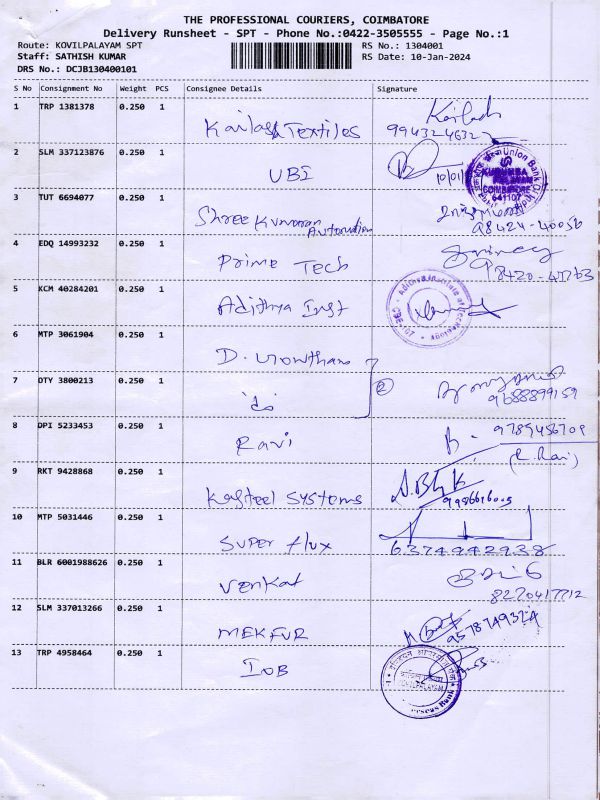 THE PROFESSIONAL COURIERS, COIMBATORE
Delivery Runsheet - SPT - Phone No.:0422-3505555 - Page No.:1
Route: KOVILPALAYAM SPT
RS No.: 1304001
Staff: SATHISH KUMAR
RS Date: 10-Jan-2024
DRS No.: DCJB130400101
S No Consignment No Weight PCS Consignee Details Signature
1 TRP 1381378 0.250 1 Kailash Textiles Kailash
2 SLM 337123876 0.250 1 UBI 10/01
Union Bank Of India
COIMBATORE
641107
3 TUT 6694077 0.250 1 Shree Kumaran Automation
98424-40056
4 EDQ 14993232 0.250 1 Prime Tech
5 KCM 40284201 0.250 1 Adithya Inst
Adithya Institute of Technology
CBE-107
6 MTP 3061904 0.250 1 D. Gowtham
7 OTY 3800213 0.250 1 do
9688899159
8 DPI 5233453 0.250 1 Ravi
9789456709
9 RKT 9428868 0.250 1 Kasteel Systems
10 MTP 5031446 0.250 1 Super flux
6374942938
11 BLR 6001988626 0.250 1 Venkat
8270417712
12 SLM 337013266 0.250 1 MEKFUR
13 TRP 4958464 0.250 1 IOB
Overseas Bank